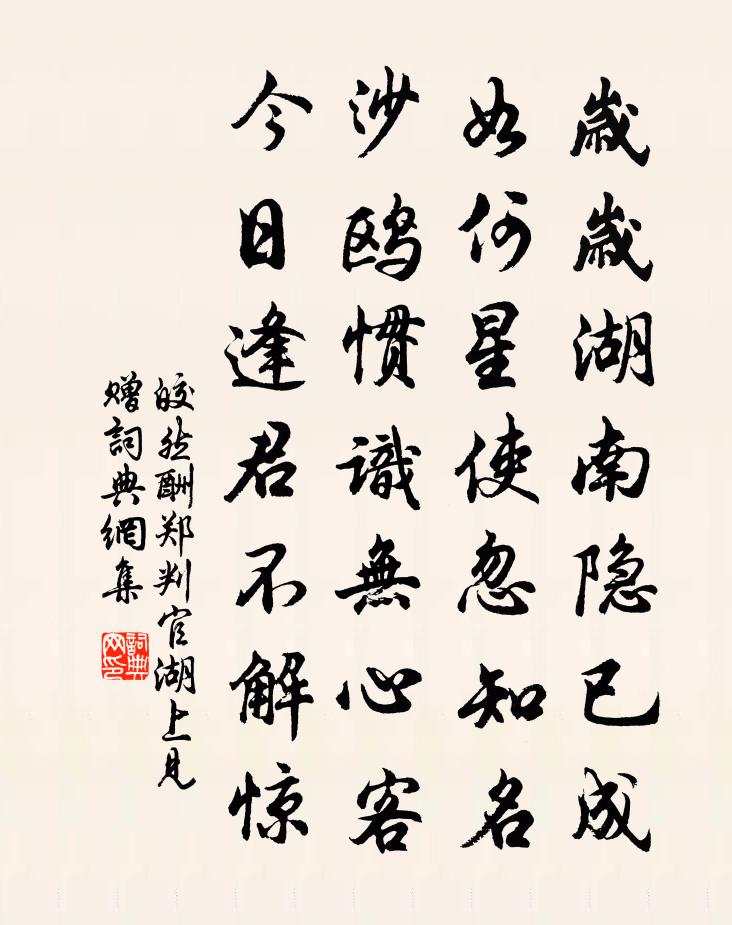 歲歲湖南隐已成
如何星使忽知名
沙鸥惯識無心客
今日逢君不解惊
皎然酬郑判官湖上見
赠詞典網集
詞典网印